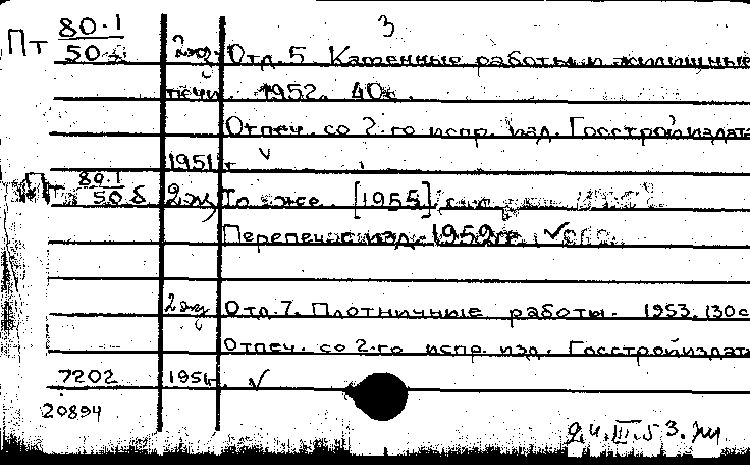 3
Пт 80.1
50 2эк Отд. 5. Каменные работы и жилищные
печи. 1952. 40с.
Отпеч. со 2-го испр. изд. Госстройиздата
1951 г ✓
Пт 80.1
50 б 2эк То же. [1955]
Перепечат. изд. 1952 г. ✓
2эк Отд. 7. Плотничные работы. 1953. 130с
Отпеч. со 2-го испр. изд. Госстройиздата
7202 1951г. ✓
20894
24.III.53.